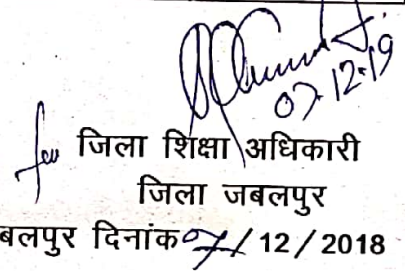 07.12.19
जिला शिक्षा अधिकारी
जिला जबलपुर
बलपुर दिनांक 07/12/2018